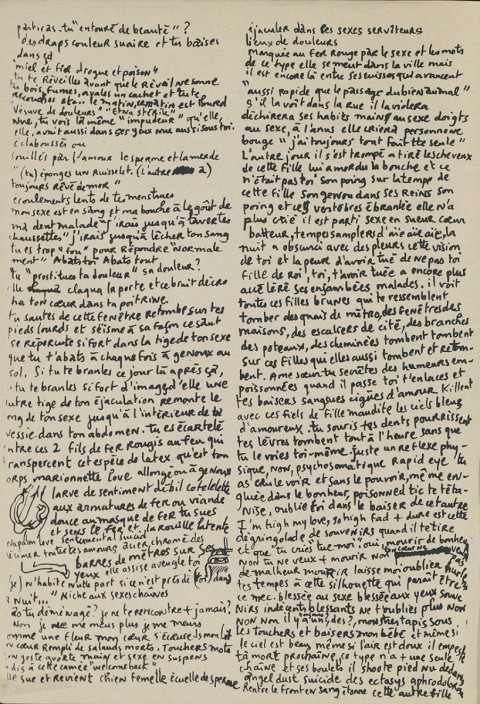 participas-tu "entouré de beauté" ?
des draps couleur suaire et tu baises
dans ça
"miel et fer drogue et poison"
tu te réveilles avant que le réveil ne sonne
tu bois, fumes, avales un cachet et tu te
recouches et le matin, ce matin est lourd
veuve de douleurs "Et va stérile"
ivre, tu vois la même "impudeur" qu'elle,
elle, avait aussi dans ses yeux
éclaboussés ou
souillés par l'amour le sperme et la merde
"(tu) éponges un ruisselet.
toujours rêve de mort"
écoulements lents de tes menstrues
mon sexe est en sang et ma bouche à le goût de
ma dent malade "j'irais jusqu'à
chaussettes" j'irais jusqu'à lécher ton sang
tu es trop pour répondre normale
ment" Abats toi Abats tout
tu "prostitues ta douleur" sa douleur ?
elle claqua la porte et ce bruit décro
cha ton cœur dans ta poitrine.
tu sautes de cette fenêtre retombe sur tes
pieds lourds et séisme à sa façon ce saut
se répercute si fort dans la tige de ton sexe
que tu t'abats à chaque fois à genoux au
sol. Si tu te branles ce jour là après ça,
tu te branles si fort d'images d'elle une
autre tige de ton éjaculation remonte le
long de ton sexe jusqu'à l'intérieur de ta
vessie dans ton abdomen. tu es écartelé
entre ces 2 fils de fer rougis au feu qui
transpercent cet espèce de latex qu'est ton
corps marionnette love allongé ou à genoux
larve de sentiment débile côtelette
aux armatures de fer ou viande
douce au masque de fer tu sues
et sens de fer et la rouille latente
napalm love sentimental suicid
éliminer toutes les amours au chrome des
barres de métros sur ses
yeux elle assise aveugle toi
(je) n'habite nulle part si ce n'est près de toi dans
la Nuit..." Niche aux sexes chaines
où tu déménages ? je ne te rencontre + jamais ?
Non je me meus plus je meurs
comme une fleur mon cœur s'écrase mon
cœur remplit de salauds morts. Touchers mots
un geste avorte main et sexe en suspens
dis à cette camée "welcome back"
elle sue et revient chien femelle écuelle de sperme
éjaculer dans des sexes serviteurs
lieux de douleurs
Marquée au fer rouge par le sexe et les mots
de ce type elle se meut dans la ville mais
il est encore là entre ses cuisses qui avancent
"aussi rapide que le passage du bien animal"
s'il la voit dans la rue il la violera
déchirera ses habits mains au sexe doigts
au sexe, à l'anus elle criera personne ne
bouge "j'ai toujours tout fait tte seule"
l'autre jour il s'est trompé a tiré les cheveux
de cette fille lui a mordu la bouche et ce
n'était pas toi son poing sur la tempe de
cette fille son genou dans ses reins son
poing et les vertèbres ébranlée elle n'a
plus crié il est parti sexe en sueur cœur
batteur, tempo samplers d'aïe aïe aïe, la
nuit a obscurci avec des pleurs cette vision
de toi et la peur d'avoir tué de ne pas toi
fille de roi, toi, t'avoir tuée a encore plus
accéléré ses enjambées malades. il voit
toutes ces filles brunes qui te ressemblent
tomber des quais de métro, des fenêtres des
maisons, des escaliers de cité, des branches
des poteaux, des cheminées tombent tombent
sur ces filles qui elles aussi tombent et retom-
bent. Ame sœur tu sécrètes des humeurs em-
poisonnées quand il passe toi t'enlaces et
tes baisers sangsues cigües d'amour killent
avec ces fiels de fille maudite les ciels bleus
d'amoureux. tu souris tes dents pourrissent
tes lèvres tombent tout à l'heure sans que
tu le vois toi-même. Juste un réflexe phy-
sique, non, psychosomatique Rapid eye tu
as cru le voir et sans le pouvoir, même en-
gluée dans le bonheur, poison ned tic te téta-
nise, oublié foi dans le baiser de cet autre
I'm high my love, so high fad + dure est cette
dégringolade de souvenirs quand il te tire
et que "tu cries tue-moi" oui, mourir de bonheur
Non tu ne veux + mourir non
de malheur mourir laisse moi oublier
tes tempes à cette silhouette qui paraît être
ce mec. blessée au sexe blessée aux yeux souve
nirs indécents blessants ne t'oublies plus Non
Non Non il y a un dés ?, monstres tapis sous
les touchers et baisers mon bébé et même si
le ciel est beau même si l'air est doux il empeste
ta mort prochaine, ce type n'a + une seule
chaîne et ses boulets il shoote pied nu dedans
angel dust suicide des ectasys aphrodo
Rentre le front en sang étonne cette autre fille